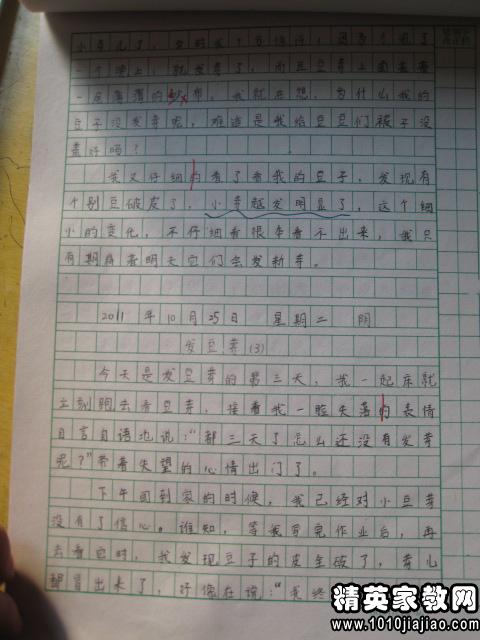 一个晚上，就发芽了，而且豆芽上面盖着
一层薄薄的纱布，我就在想，为什么我的
豆子没发芽呢，难道是我给豆豆们被子没
盖好吗？
我又仔细的看了看我的豆子，发现有
个别豆破皮了，小芽越发明显了，这个细
小的变化，不仔细看根本看不出来，我只
有期盼着明天它们会发新芽。
2011年10月25日 星期二 阴
发豆芽(3)
今天是发豆芽的第三天，我一起床就
立刻跑去看豆芽，接着我一脸失落的表情
自言自语地说：“都三天了怎么还没有发芽
呢？”带着失望的心情出门了。
下午回到家的时候，我已经对小豆芽
没有了信心。谁知，等我写完作业后，再
去看它时，我发现豆子的皮全破了，芽儿
都冒出来了，好像在说：“我终
精英家教网
www.1010jiajiao.com